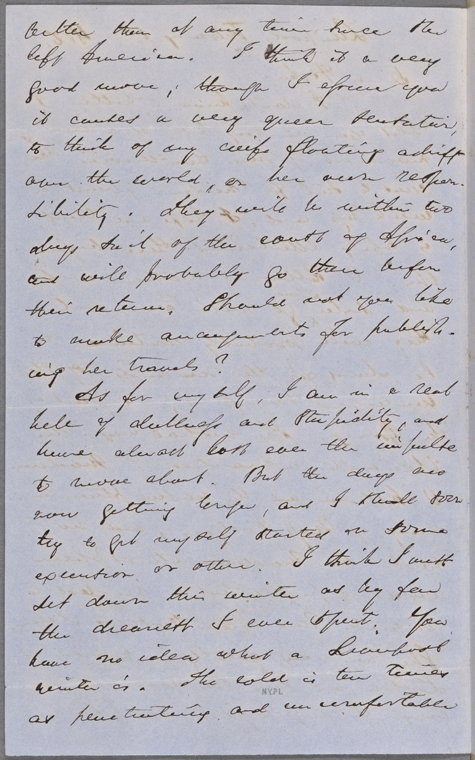 better than at any time since she
left America. I think it a very
good move; though I assure you
it causes a very queer sensation,
to think of my wife floating adrift
over the world, on her own respon-
sibility. They will be within two
days' sail of the coast of Africa,
and will probably go there before
their return. Should not you like
to make arrangements for publish-
ing her travels?
As for myself, I am in a real
hell of dullness and stupidity, and
have almost lost even the impulse
to move about. But the days are
now getting longer, and I shall soon
try to get myself started on some
excursion or other. I think I must
set down this winter as by far
the dreariest I ever spent. You
have no idea what a Liverpool
winter is. The cold is ten times
as penetrating and uncomfortable
NYPL